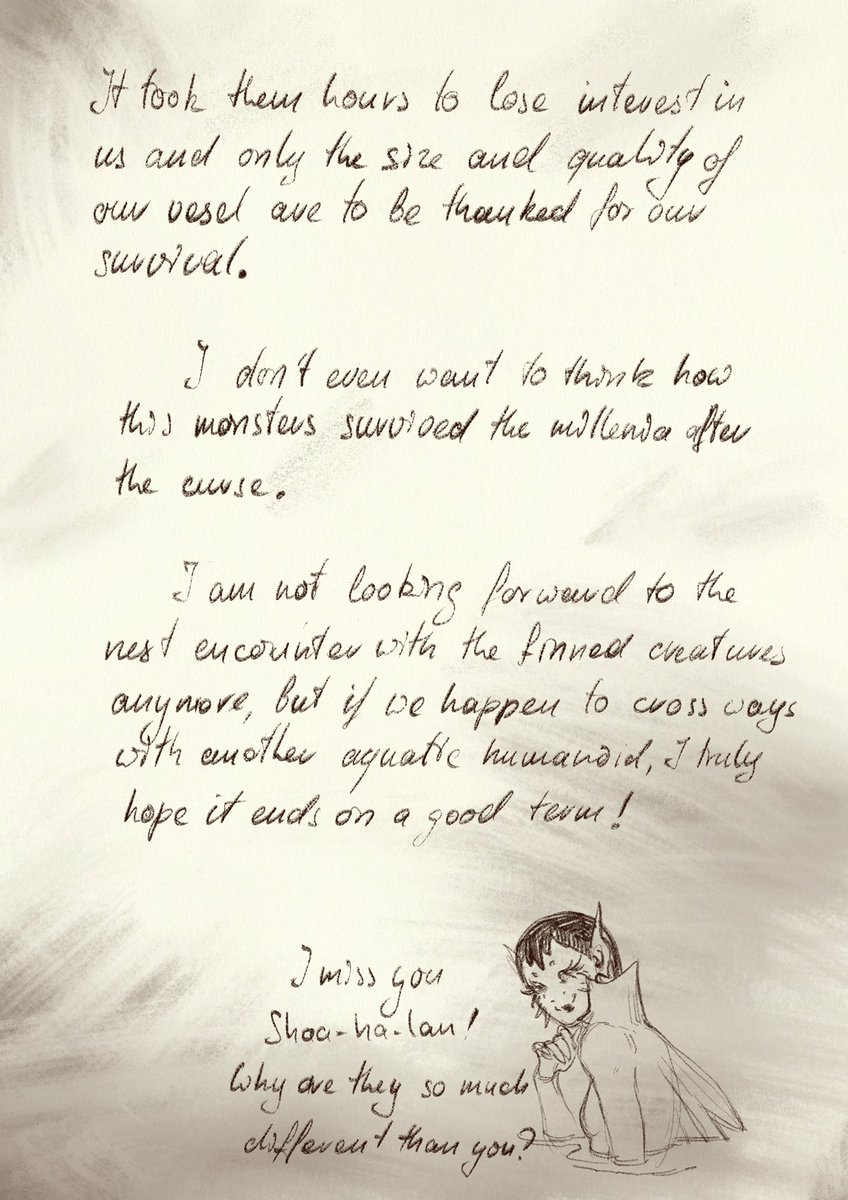 It took them hours to lose interest in
us and only the size and quality of
our vesel are to be thanked for our
survival.
I don't even want to think how
this monsters survived the millenia after
the curse.
I am not looking forward to the
nest encounter with the finned creatures
anymore, but if we happen to cross ways
with another aquatic humanoid, I truly
hope it ends on a good term!
I miss you
Shoa-ha-lan!
Why are they so much
different than you?